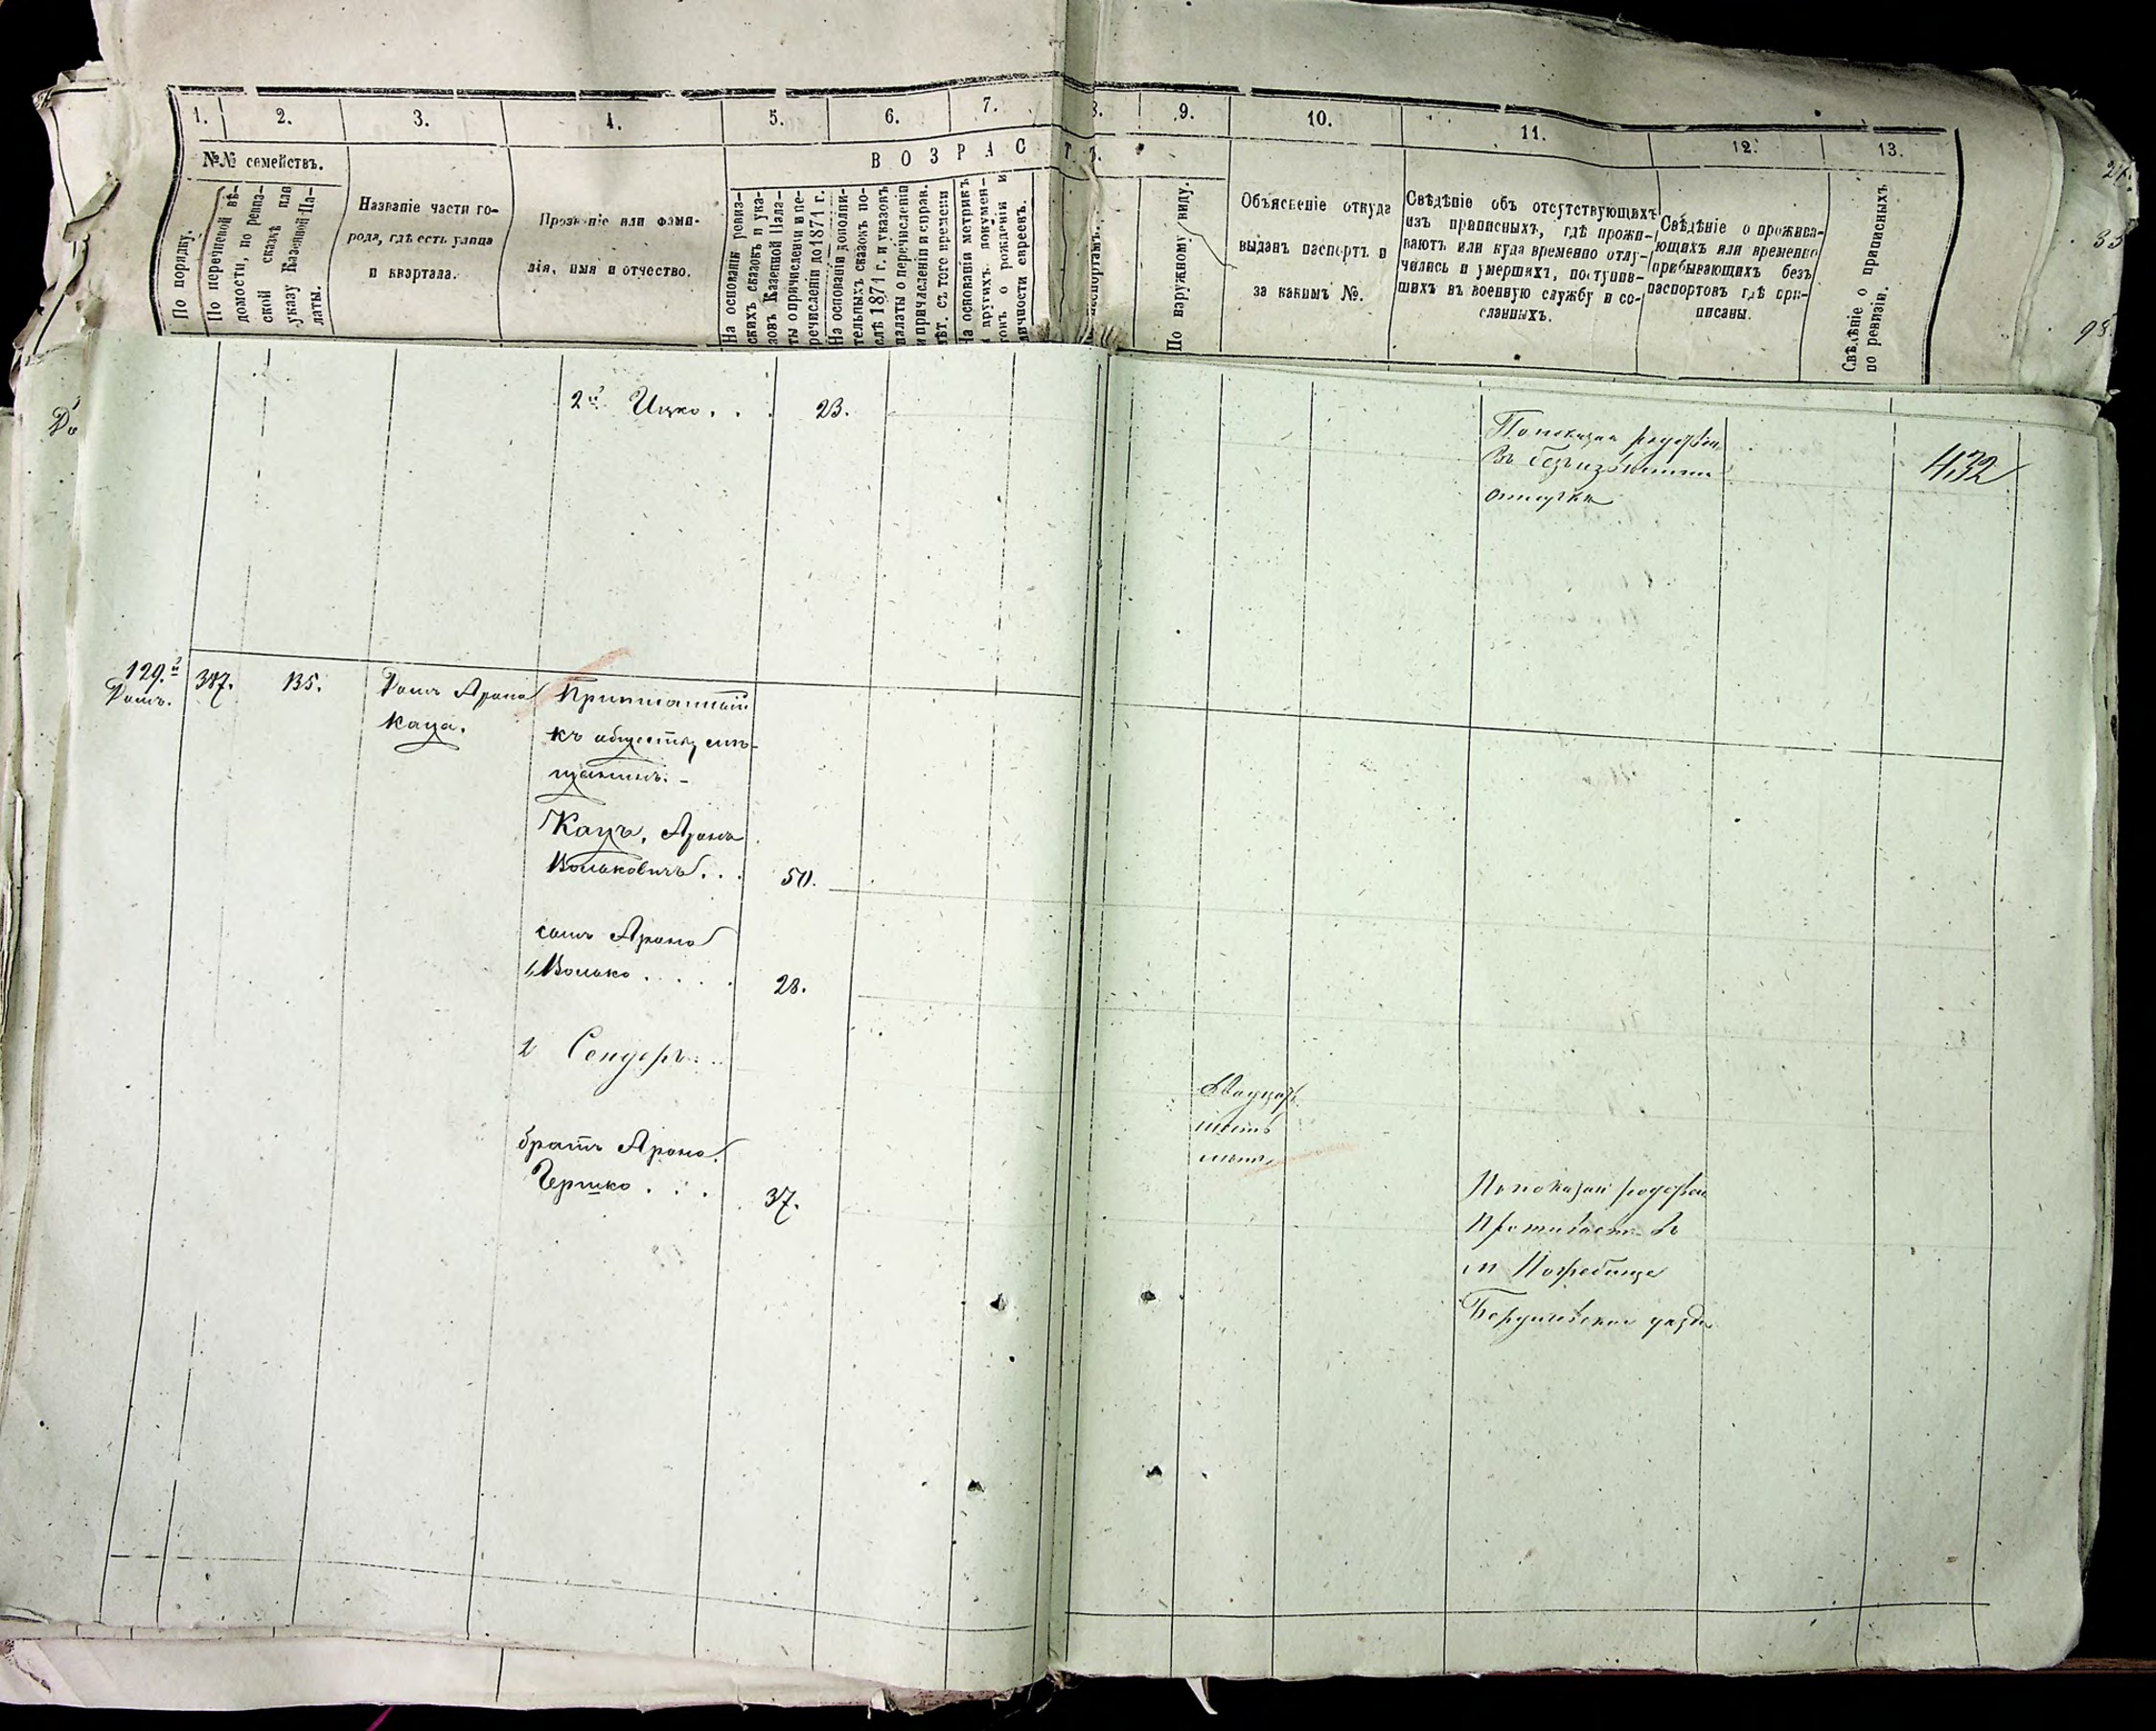 1. 2. 3. 4. 5. 6. 7. 8. 9. 10. 11. 12. 13.
№№ семействъ.
ВОЗРАСТЪ.
По порядку.
По перечневой вѣ-
домости, по ревиз-
ской сказкѣ или
указу Казенной Па-
латы.
Названіе части го-
рода, гдѣ есть улица
и квартала.
Прозваніе или фами-
лія, имя и отчество.
На основаніи ревиз-
скихъ сказокъ и ука-
зовъ Казенной Пала-
ты о причисленіи и пе-
речисленіи до 1871 г.
На основаніи дополни-
тельныхъ сказокъ по-
слѣ 1871 г. и указовъ
палаты о перечисленіи
и причисленіи и справ.
лѣт. съ того времени
На основаніи метрикъ
и другихъ докумен-
товъ о рожденіи и
личности евреевъ.
паспортамъ.
По наружному виду.
Объясненіе откуда
выданъ паспортъ и
за какимъ №.
Свѣдѣніе объ отсутствующихъ
изъ приписныхъ, гдѣ прожи-
ваютъ или куда временно отлу-
чились и умершихъ, поступив-
шихъ въ военную службу и со-
сланныхъ.
Свѣдѣніе о прожива-
ющихъ или временно
прибывающихъ безъ
паспортовъ гдѣ при-
писаны.
Свѣдѣніе о приписныхъ
по ревизіи.
2й Ицко. . . 23.
По показан родствен
въ безъизвѣстной
отлучке
432
129.й
Домъ.
387. 135.
Домъ Арона
Каца.
Приписанный
къ обществу мѣ-
щанинъ. -
Кацъ, Аронъ
Вольковичъ. . . 50.
сынъ Арона
1, Волько . . . . 28.
2 Сендеръ . . .
Двадцать
шесть
лѣтъ
братъ Арона
Гершко . . . 37.
По показан родствен
Проживаетъ въ
м Погребище
Бердичевскаго уѣзда